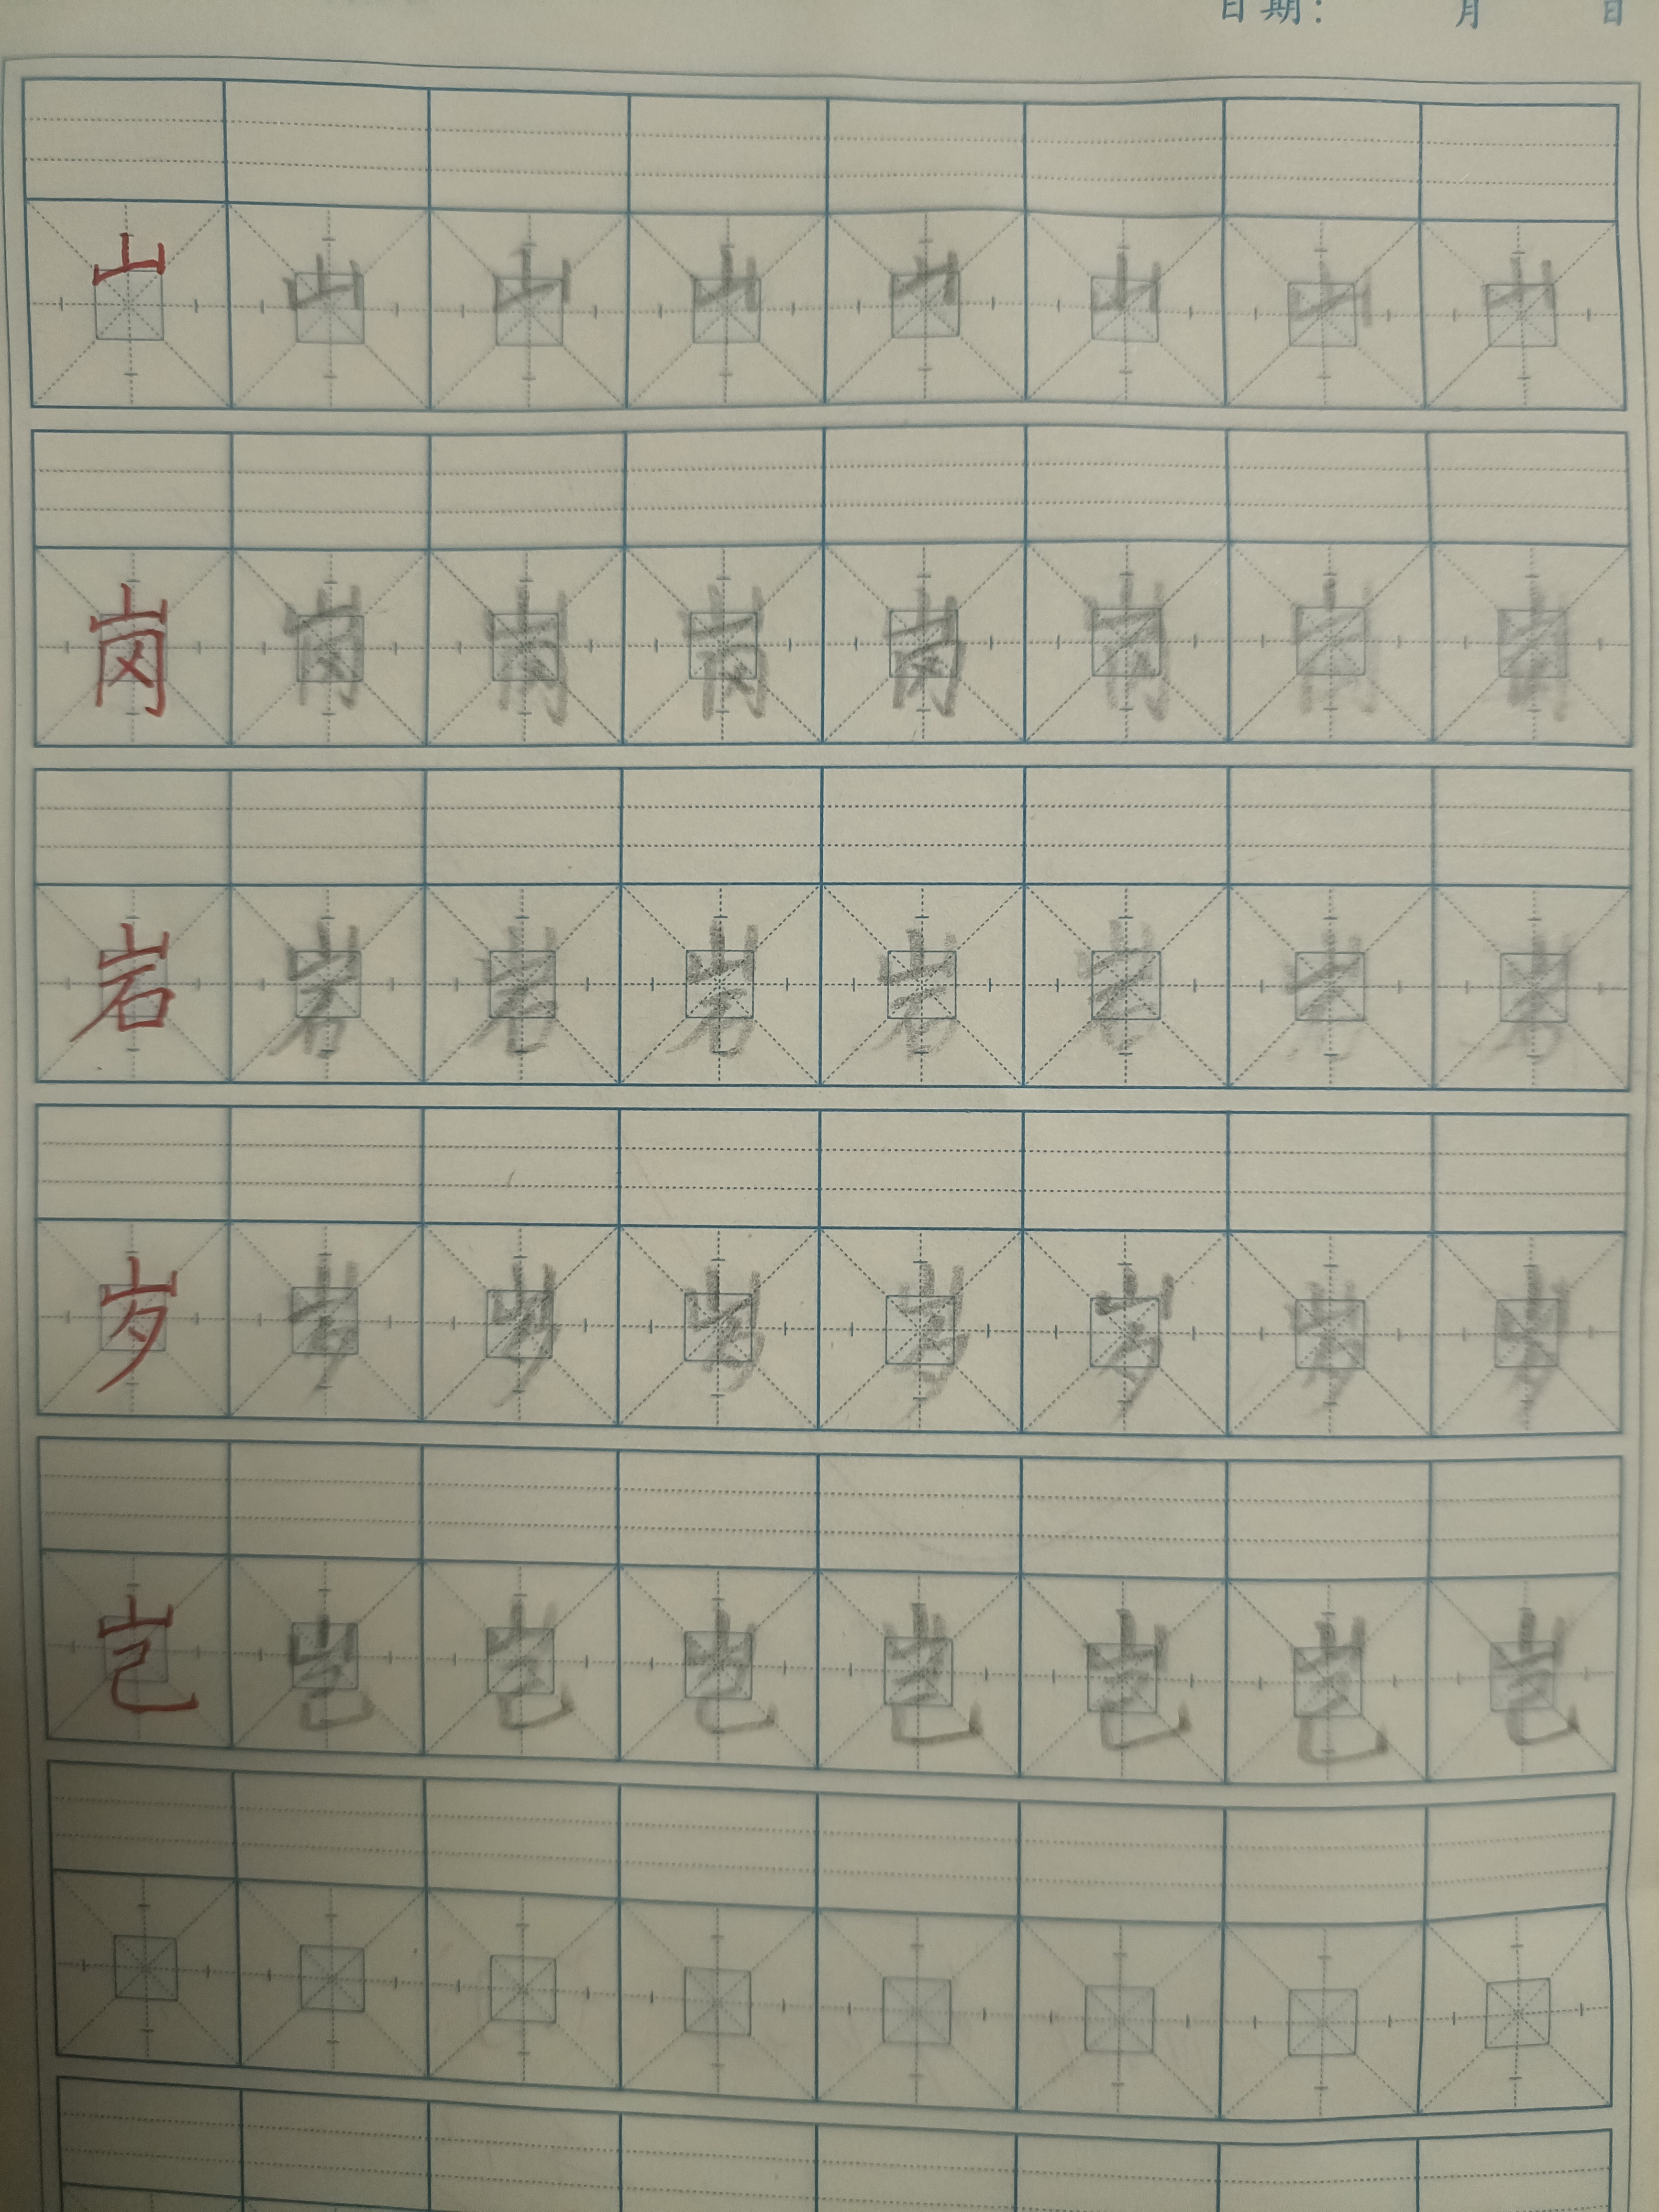 日期： 月 日
山 山 山 山 山 山 山 山
岗 岗 岗 岗 岗 岗 岗 岗
岩 岩 岩 岩 岩 岩 岩 岩
岁 岁 岁 岁 岁 岁 岁 岁
岂 岂 岂 岂 岂 岂 岂 岂